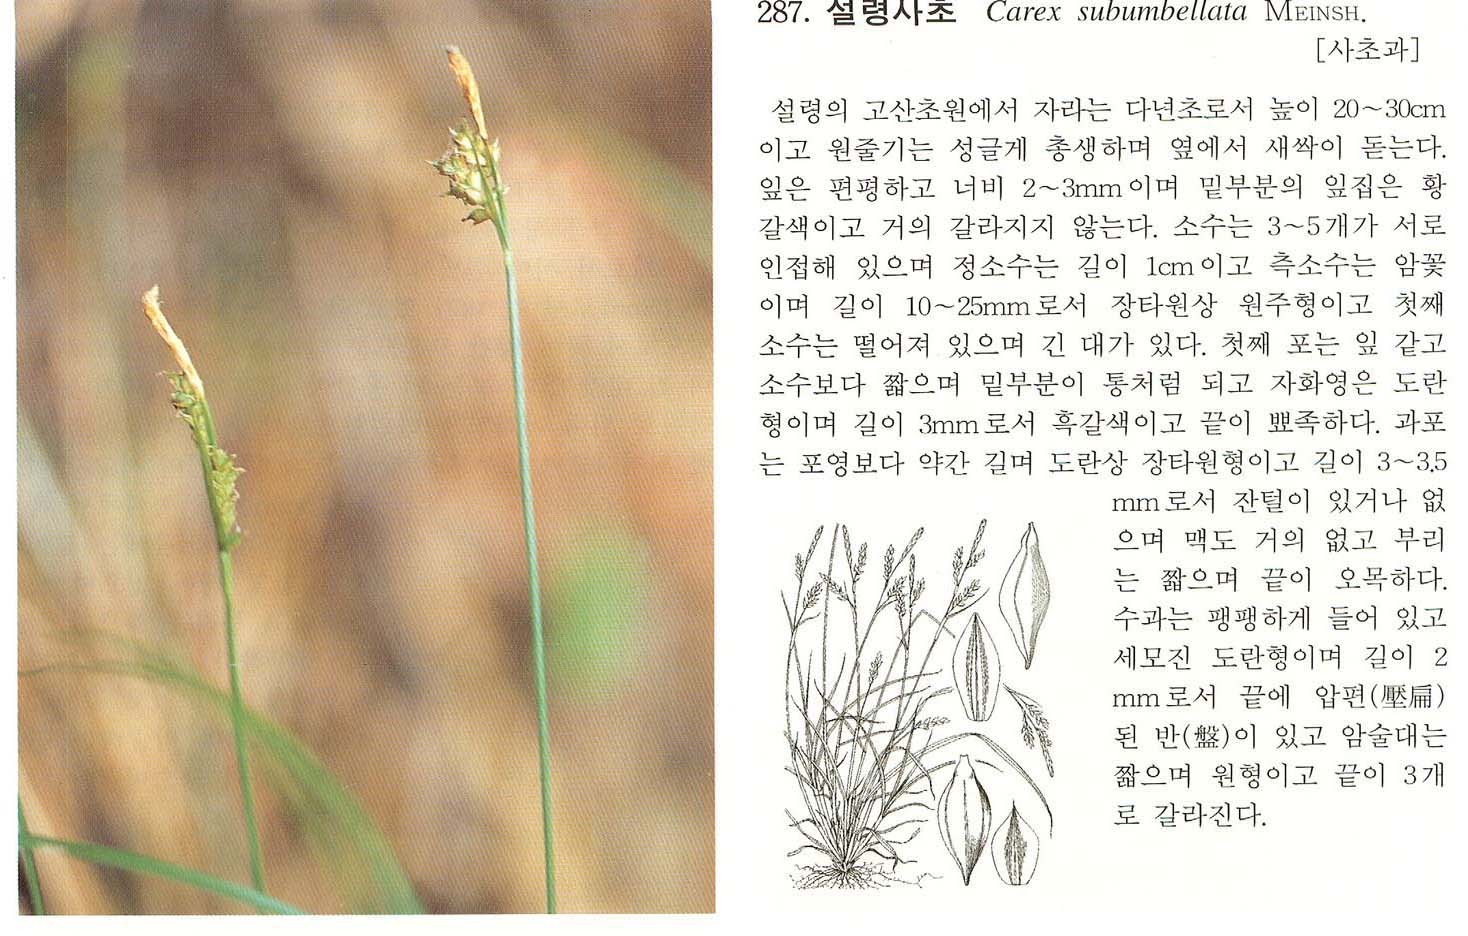 287. 설령사초 Carex subumbellata MEINSH.
[사초과]
설령의 고산초원에서 자라는 다년초로서 높이 20~30cm
이고 원줄기는 성글게 총생하며 옆에서 새싹이 돋는다.
잎은 편평하고 너비 2~3mm이며 밑부분의 잎집은 황
갈색이고 거의 갈라지지 않는다. 소수는 3~5개가 서로
인접해 있으며 정소수는 길이 1cm이고 측소수는 암꽃
이며 길이 10~25mm로서 장타원상 원주형이고 첫째
소수는 떨어져 있으며 긴 대가 있다. 첫째 포는 잎 같고
소수보다 짧으며 밑부분이 통처럼 되고 자화영은 도란
형이며 길이 3mm로서 흑갈색이고 끝이 뾰족하다. 과포
는 포영보다 약간 길며 도란상 장타원형이고 길이 3~3.5
mm로서 잔털이 있거나 없
으며 맥도 거의 없고 부리
는 짧으며 끝이 오목하다.
수과는 팽팽하게 들어 있고
세모진 도란형이며 길이 2
mm로서 끝에 압편(壓扁)
된 반(盤)이 있고 암술대는
짧으며 원형이고 끝이 3개
로 갈라진다.